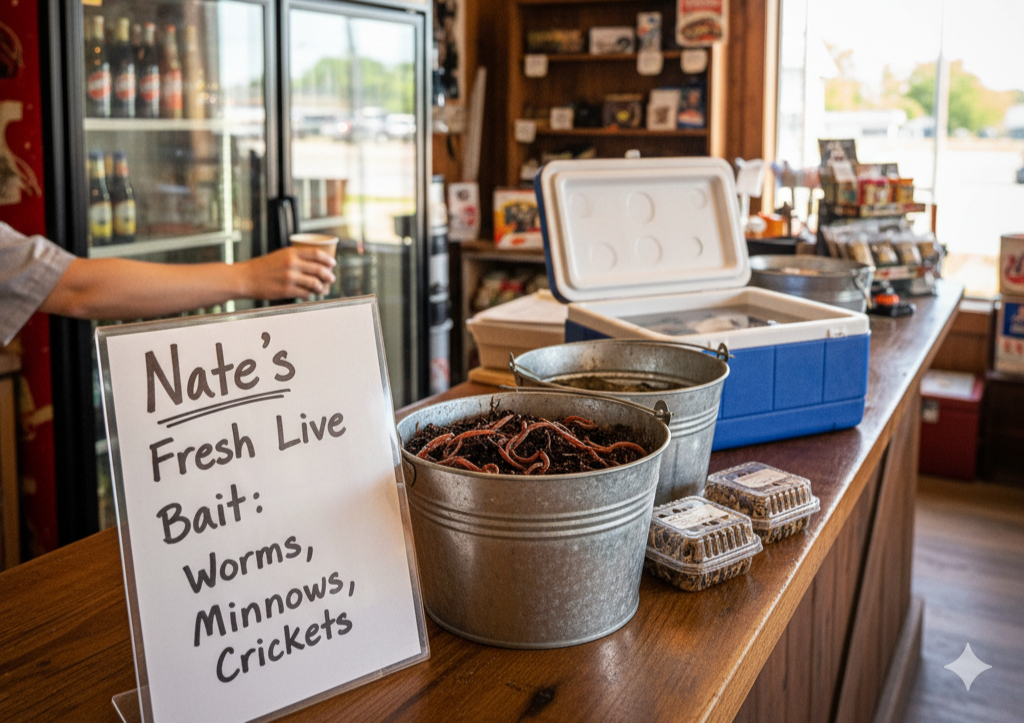 Nate's
Fresh Live
Bait:
Worms,
Minnows,
Crickets